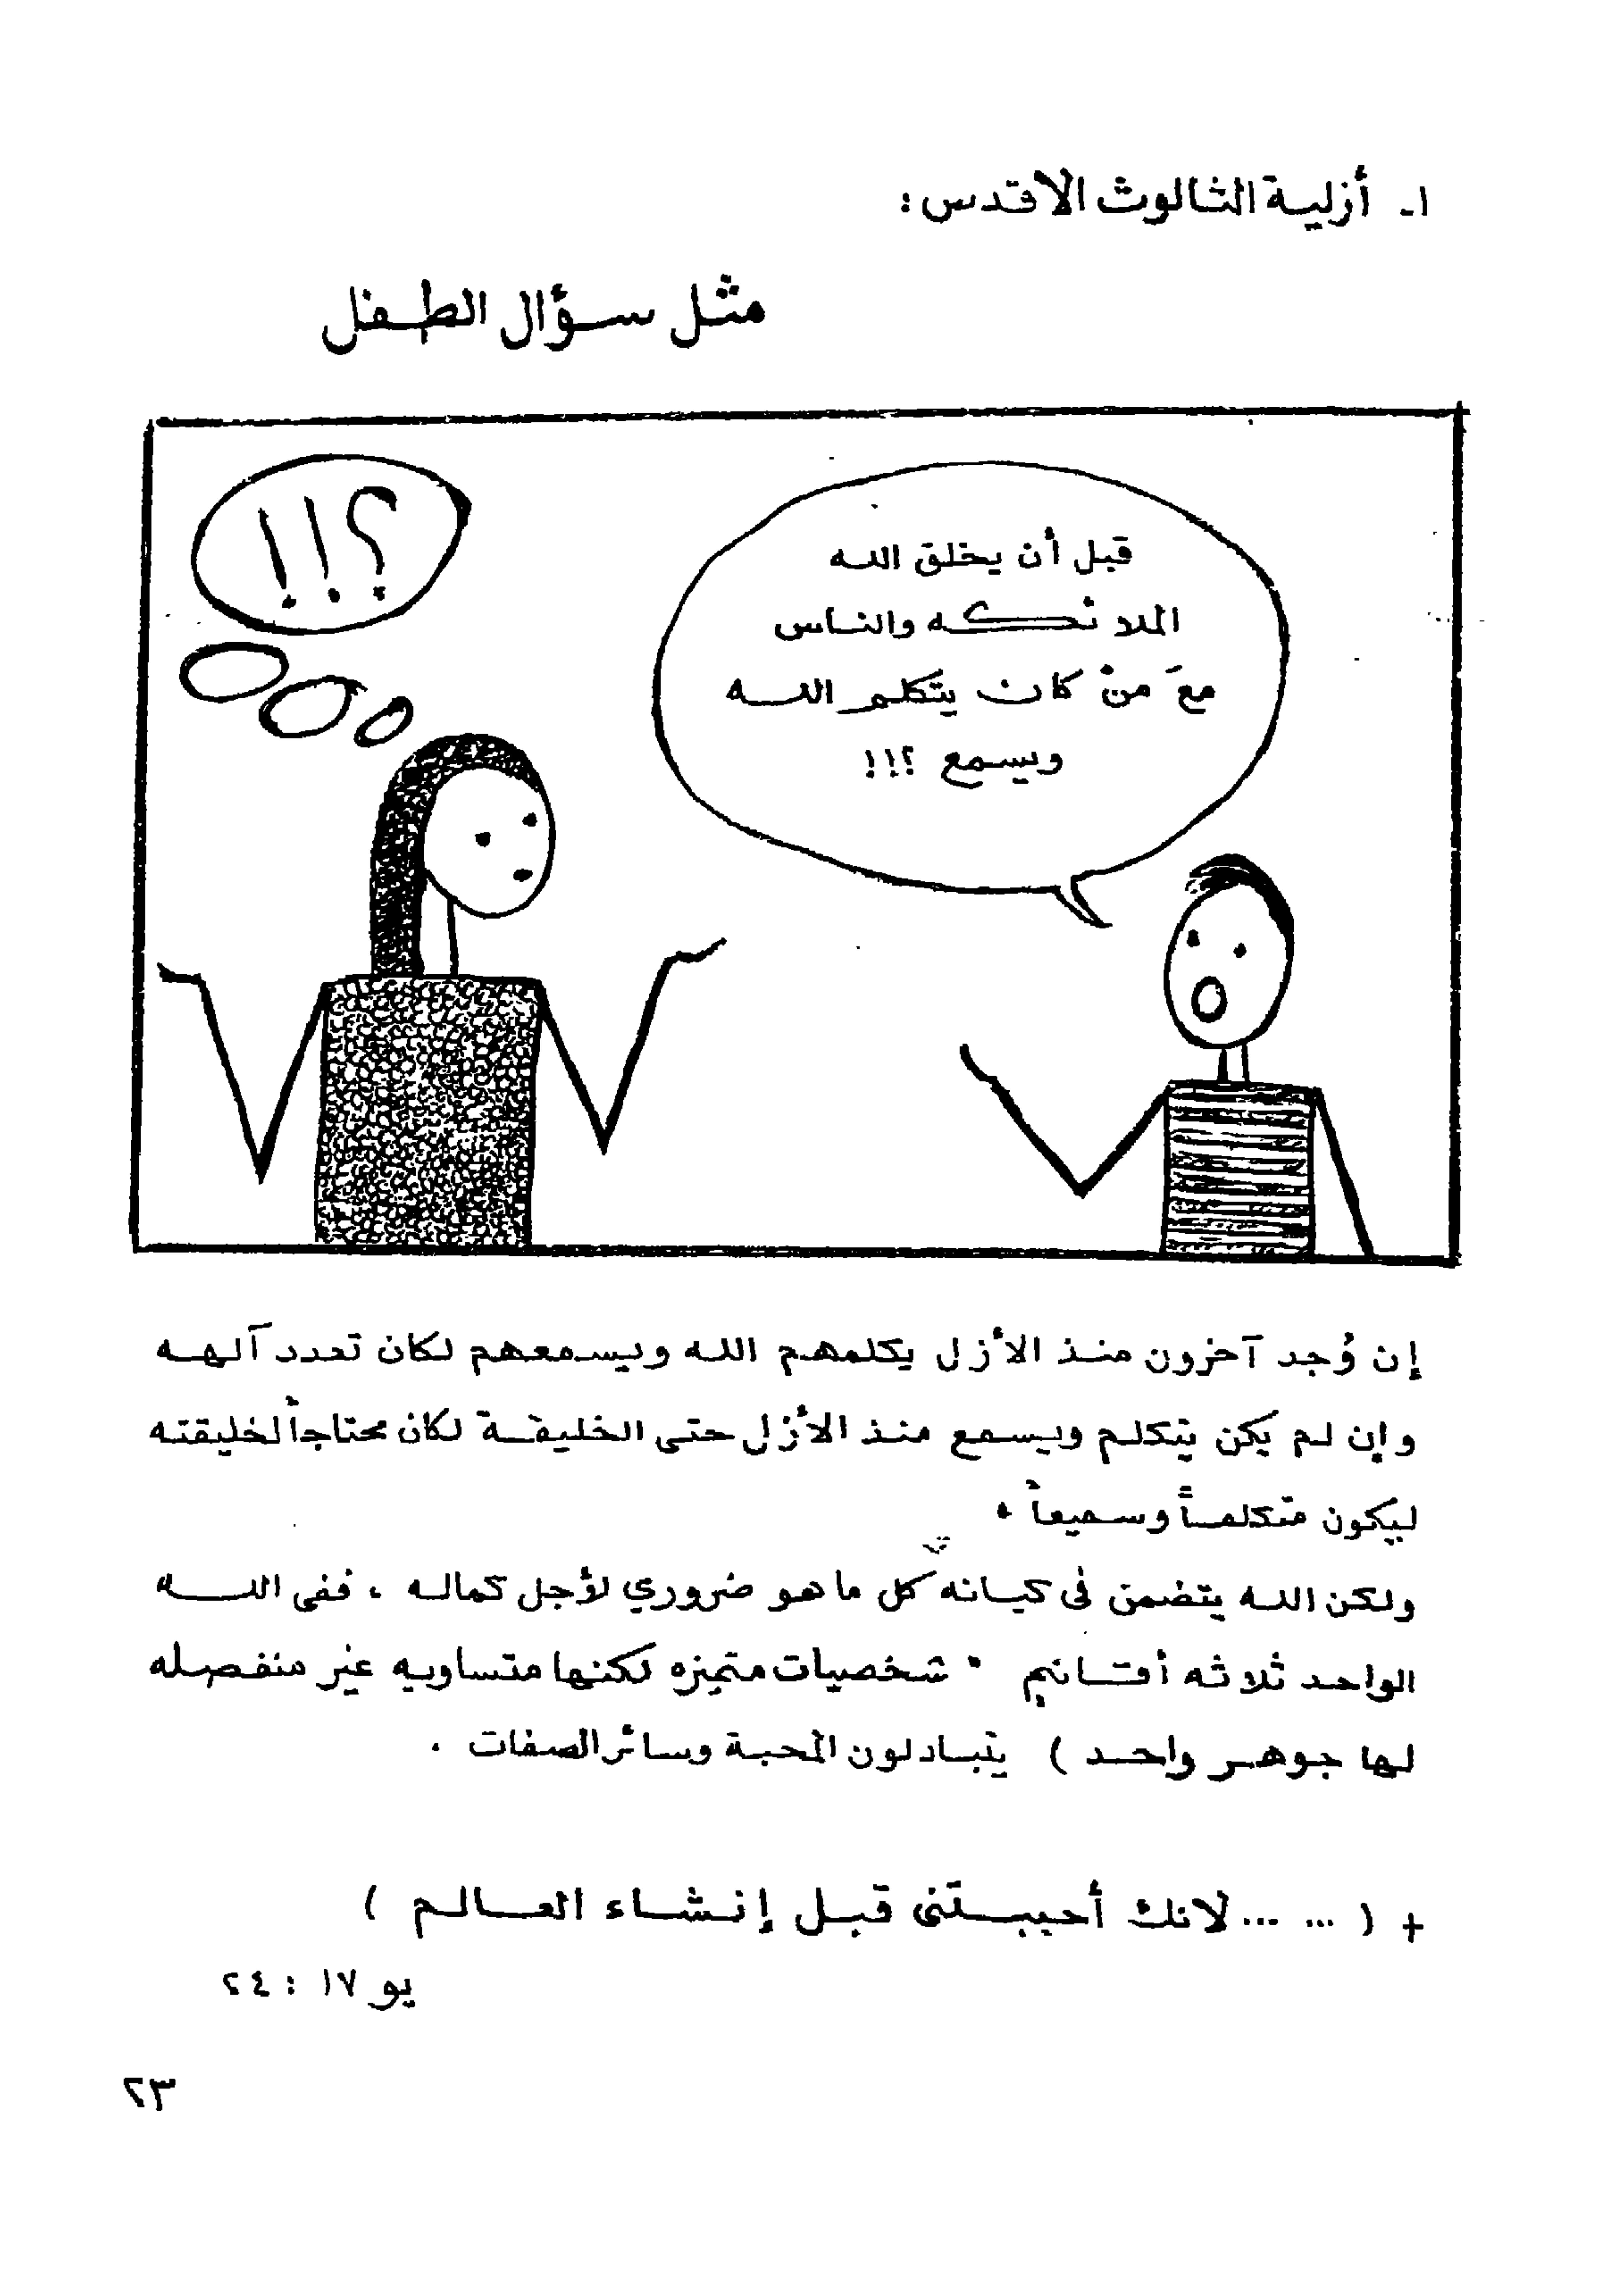 ١- أزلية الثالوث الاقدس :
مثل سؤال الطفل
؟!!
قبل أن يخلق الله
الملائكه والناس
معَ منْ كان يتكلم الله
ويسمع ؟!!
إن وُجد آخرون منذ الأزل يكلمهم الله ويسمعهم لكان تعدد آلهه
وإن لم يكن يتكلم ويسمع منذ الأزل حتى الخليقة لكان محتاجاً لخليقته
ليكون متكلماً وسميعاً .
ولكن الله يتضمن فى كيانه كل ما هو ضروري لأجل كماله ، ففى الله
الواحد ثلاثه أقانيم " شخصيات متميزه لكنها متساويه غير منفصله
لها جوهر واحد ) يتبادلون المحبة وسائر الصفات .
+ ( ... ... لانك أحببتنى قبل إنشاء العالم )
يو ١٧ : ٢٤
٢٣